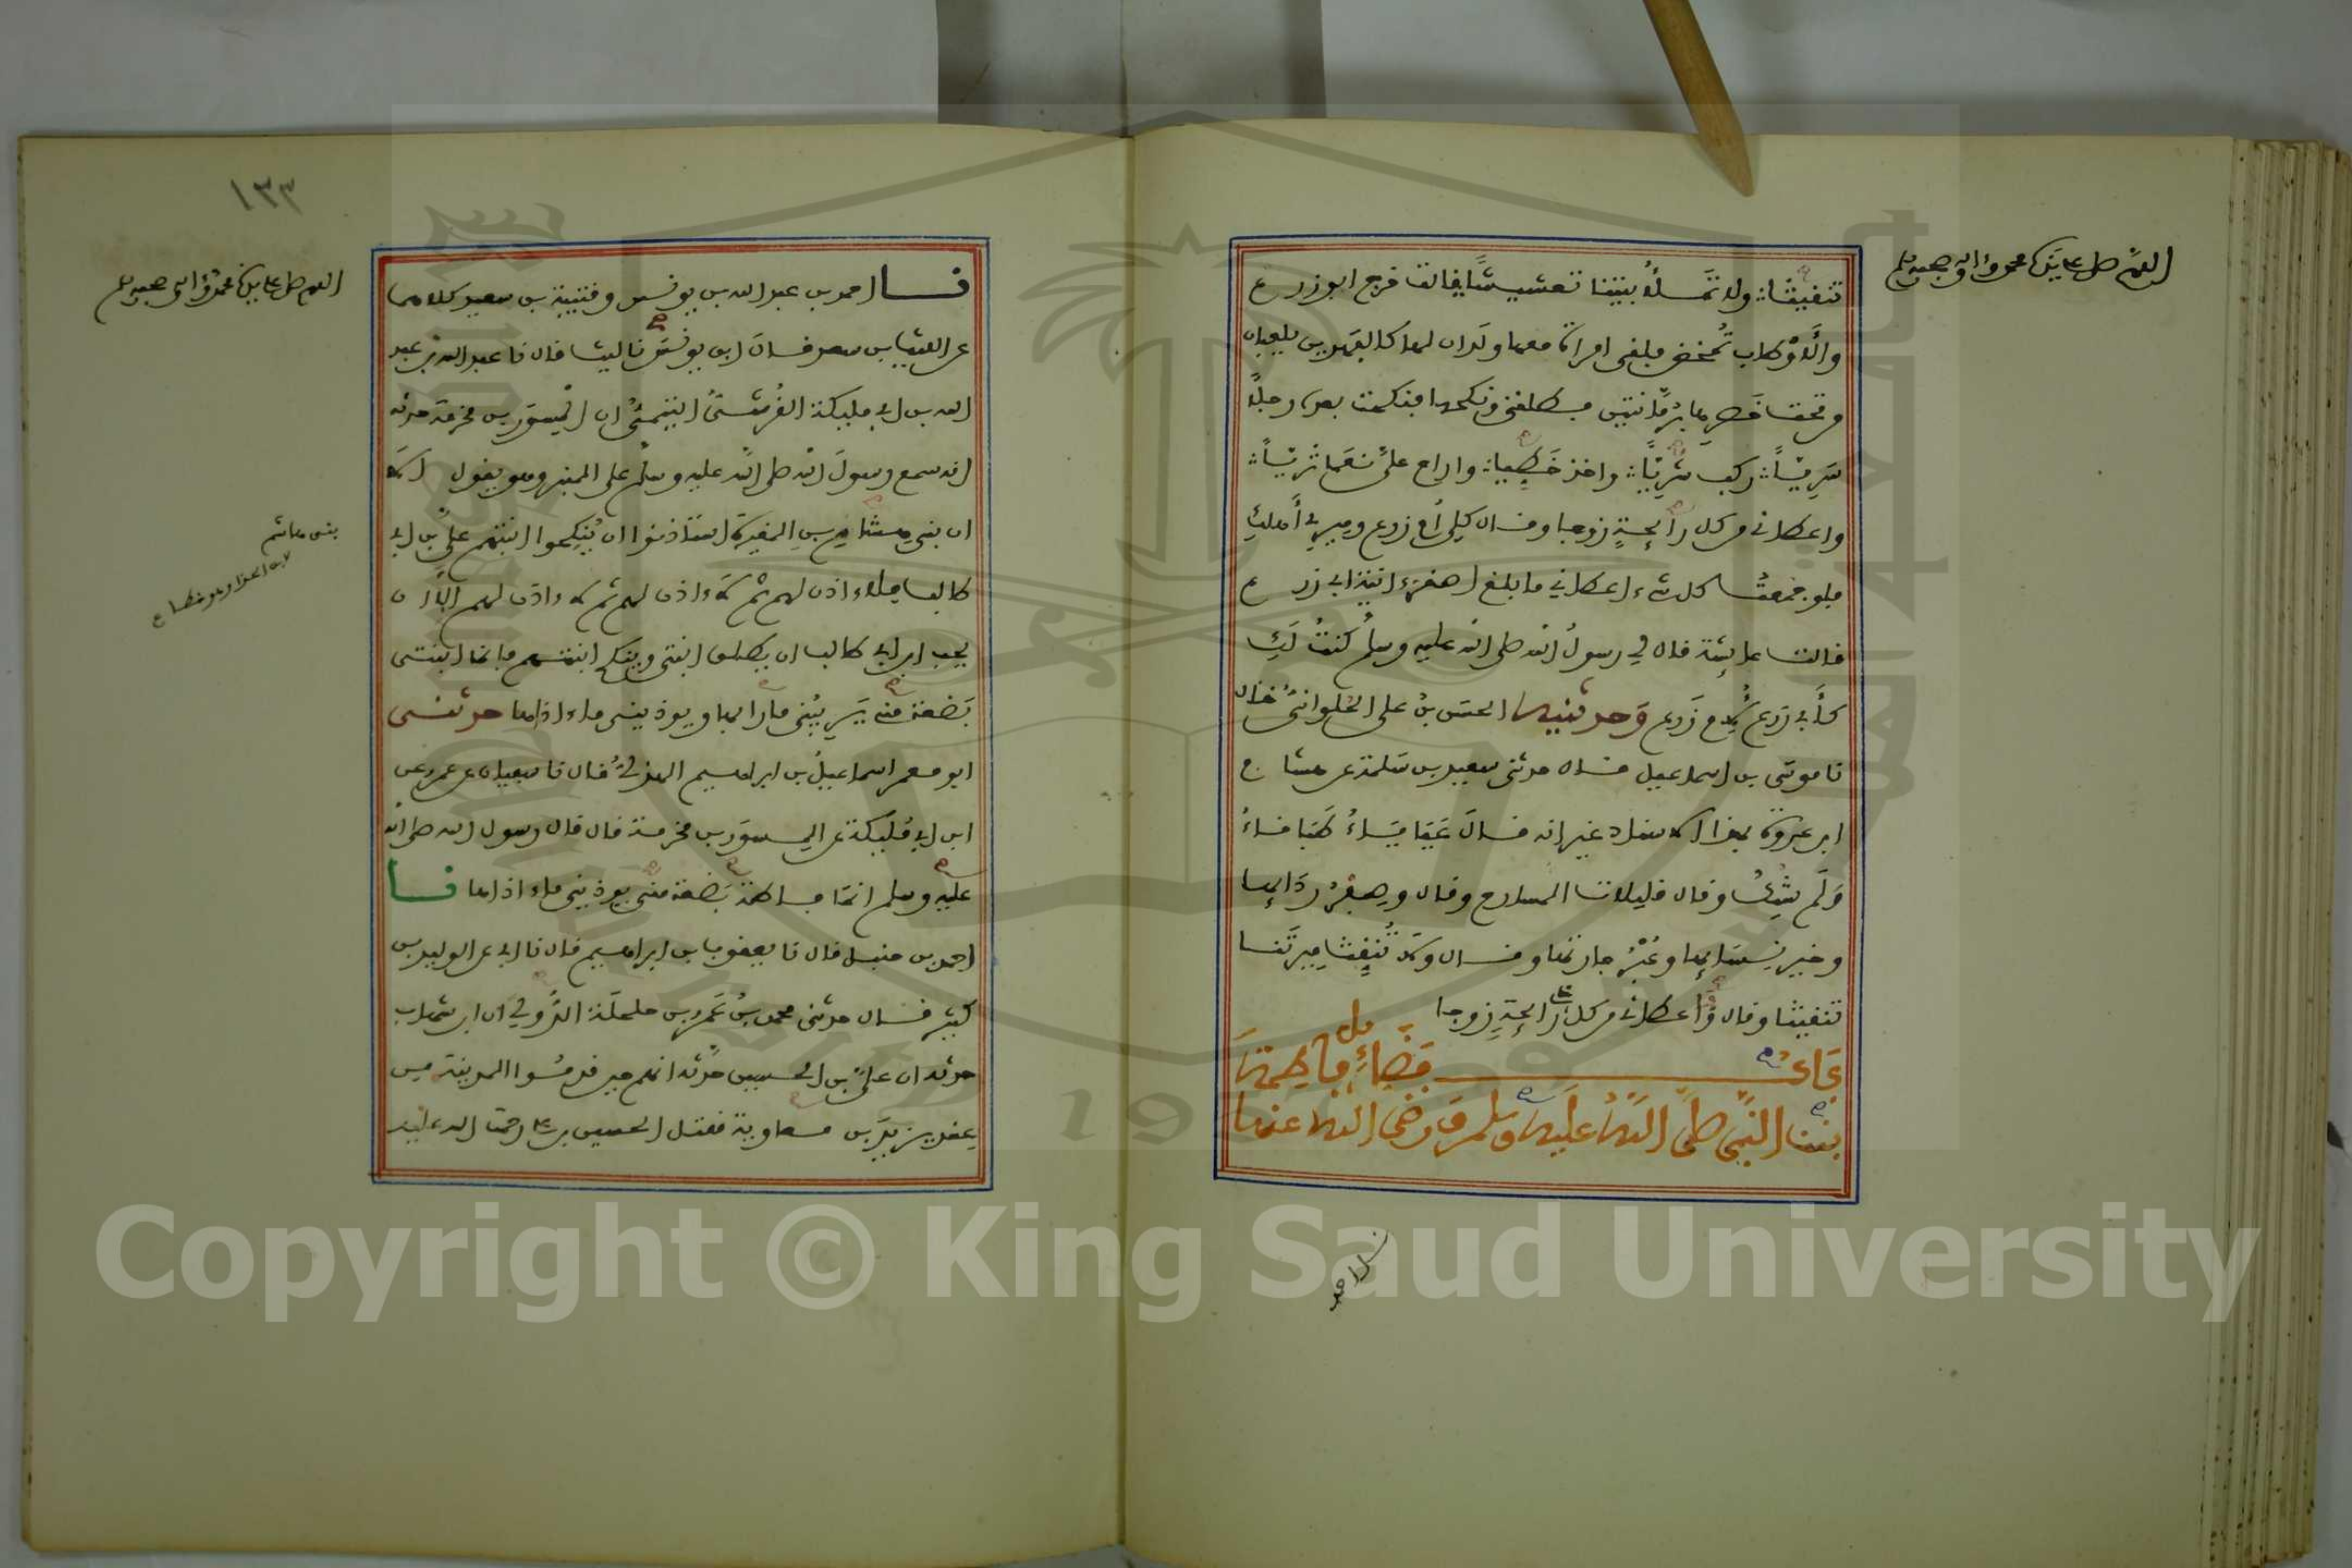 اللهم صل على سيدنا محمد وآله وصحبه وسلم
تنقيثا ولا تملأ بيتنا تعشيشا قالت خرج ابو زرع
والاوطاب تمخض فلقي امراة معها ولدان لها كالفهدين يلعبان
من تحت خصرها برمانتين فطلقني ونكحها فنكحت بعده رجلا
سريا ركب شريا واخذ خطيا واراح علي نعما ثريا
واعطاني من كل رائحة زوجا وقال كلي ام زرع وميري أهلك
فلو جمعت كل شيء اعطاني ما بلغ اصغر ءانية ابي زرع
قالت عايشة قال لي رسول الله صلى الله عليه وسلم كنت لك
كأبي زرع لأم زرع وحدثنيه الحسن بن علي الحلواني قال
نا موسى بن اسماعيل قال حدثني سعيد بن سلمة عن هشام
ابن عروة بهذا الاسناد غير انه قال عياياء طباقاء
ولم يشك وقال قليلات المسارح وقال وصفر ردائها
وخير نسائها وعقر جارتها وقال ولا تنقث ميرتنا
تنقيثا وقال وأعطاني من كل رائحة زوجا
باب فضائل فاطمة
بنت النبي صلى الله عليه وسلم ورضي الله عنها
نا احمد
١٣٣
اللهم صل على سيدنا محمد وآله وصحبه وسلم
نا احمد بن عبد الله بن يونس وقتيبة بن سعيد كلاهما
عن الليث بن سعد قال ابن يونس نا ليث قال نا عبد الله بن عبيد
الله بن ابي مليكة القرشي التيمي ان المسور بن مخرمة حدثه
انه سمع رسول الله صلى الله عليه وسلم على المنبر وهو يقول الا
ان بني هشام بن المغيرة استأذنوا ان ينكحوا ابنتهم علي بن ابي
طالب فلا ءاذن لهم ثم لا ءاذن لهم ثم لا ءاذن لهم الا ان
يحب ابن ابي طالب ان يطلق ابنتي وينكح ابنتهم فإنما ابنتي
بضعة مني يريبني ما رابها ويوذيني ما ءاذاها حدثني
ابو معمر اسماعيل بن ابراهيم الهذلي قال نا سفيان عن عمرو عن
ابن ابي مليكة عن المسور بن مخرمة قال قال رسول الله صلى الله
عليه وسلم انما فاطمة بضعة مني يوذيني ما ءاذاها نا
احمد بن حنبل قال نا يعقوب بن ابراهيم قال نا ابي عن الوليد بن
كثير قال حدثني محمد بن عمرو بن حلحلة الدؤلي ان ابن شهاب
حدثه ان علي بن الحسين حدثه انهم حين قدموا المدينة من
عند يزيد بن معاوية مقتل الحسين بن علي رحمة الله عليه
بني هاشم